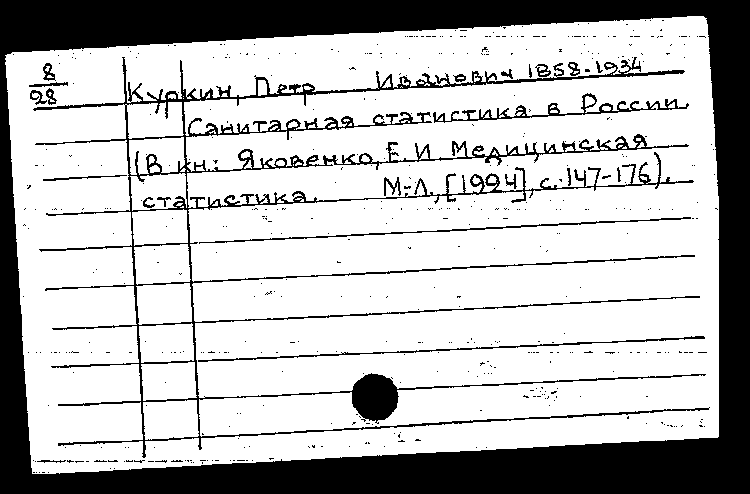 8
98
Куркин, Петр Иванович 1858-1934
Санитарная статистика в России.
(В кн.: Яковенко, Е.И. Медицинская
статистика. М.-Л., [1924], с. 147-176).